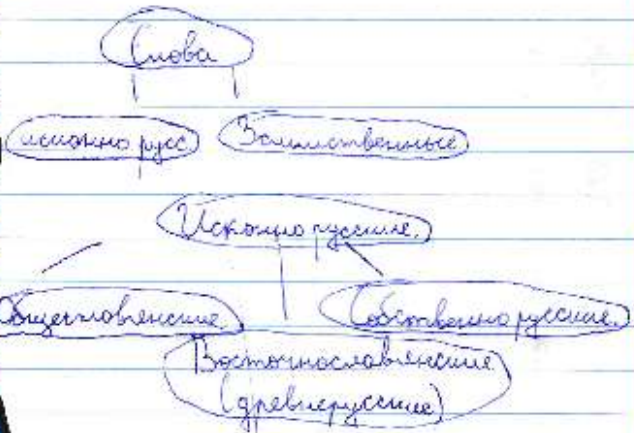 Слова
исконно русс Заимственные
Исконно русские.
Общеславянские. Собственно русские.
Восточнославянские
(древнерусские)